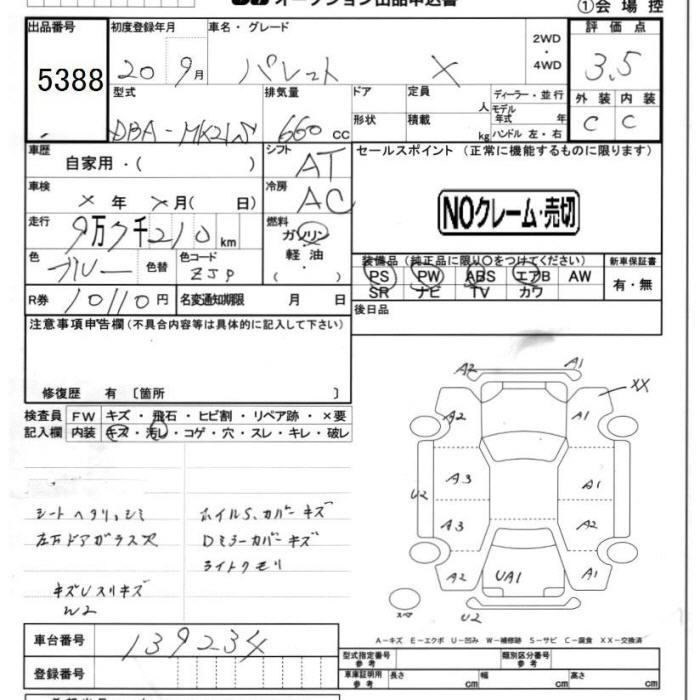 オークション出品申込書 ①会場控
出品番号 初度登録年月 車名・グレード 2WD ・ 4WD 評価点
5388 20 9月 パレット X 3.5
型式 排気量 ドア 定員 人 ディーラー・並行 外装 内装
DBA-MK21S 660cc 形状 積載 kg モデル年式 年 ハンドル 左・右 C C
車歴 シフト セールスポイント (正常に機能するものに限ります)
自家用・( ) AT
車検 冷房
× 年 × 月( 日) AC NOクレーム・売切
走行 燃料
9万7千210km ガソリン
色 色替 色コード 軽油
ブルー ZJP ( ・ )
装備品 (純正品に限り○をつけてください) 新車保証書
PS PW ABS エアB AW 有・無
SR ナビ TV カワ
R券 10110円 名変通知期限 月 日 後日品
注意事項申告欄(不具合内容等は具体的に記入して下さい)
修復歴 有〔箇所 〕
検査員 FW キズ・飛石・ヒビ割・リペア跡・×要
記入欄 内装 キズ・汚レ・コゲ・穴・スレ・キレ・破レ
シートヘタリ、シミ ホイルS,カバーキズ
左万ドアガラスス Dミラーカバーキズ
ライトクモリ
キズUスリキズ
W2
A2 A1
XX
A2 A1
U2 A3 A1
A3 A2
A2 UA1 A1
スペア U2
A-キズ E-エクボ U-凹み W-補修跡 S-サビ C-腐食 XX-交換済
車台番号 139234
登録番号
型式指定番号 参考 類別区分番号 参考
車庫証明用 参考 長さ cm 幅 cm 高さ cm